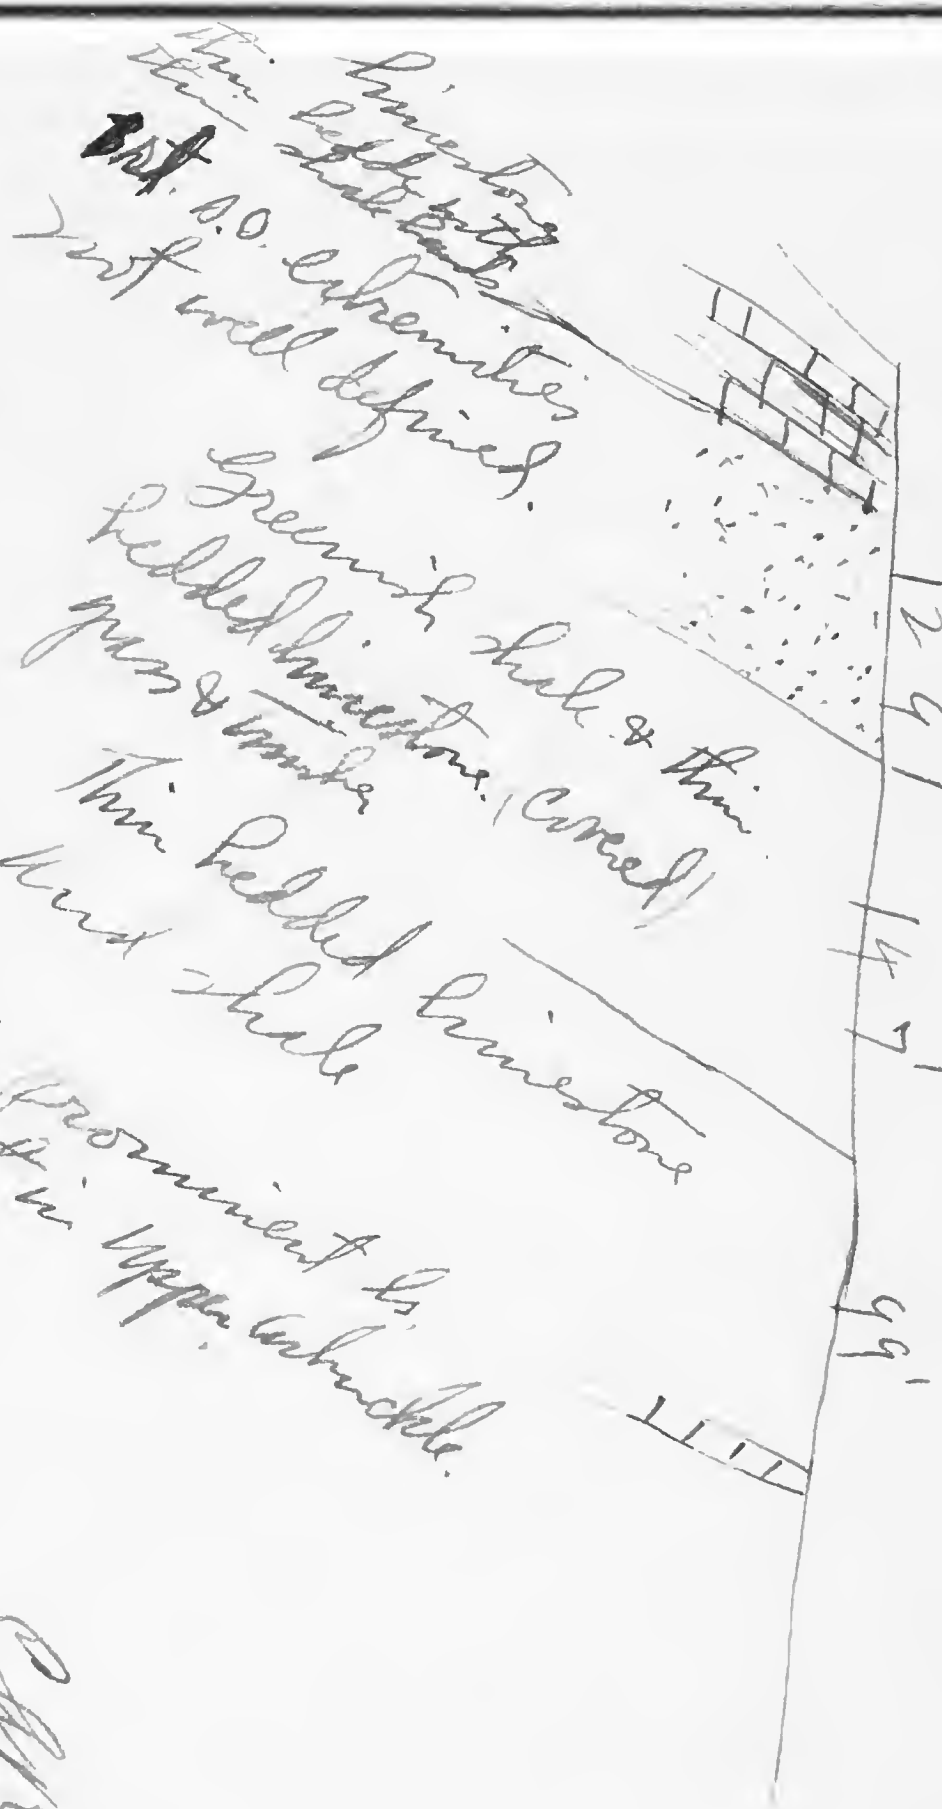 Limestone
thin bedded with
thin shale bands
1st. S.O. extremities
not well defined.
Greenish shale & thin
bedded limestone, (covered)
grass & timber
Thin bedded limestone
and shale
Prominent ls.
in upper Arbuckle.
124
147'
99'